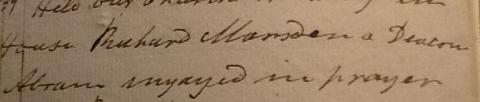 Held our Church in
House Richard Marsden a Deacon
Abram ingayed in prayer